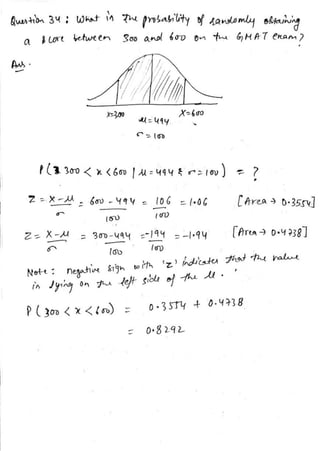 Question 34 : What is the probability of randomly obtaining
a score between 300 and 600 on the GMAT exam?
Ans.
x=300
X=600
μ = 494
σ = 100
P( 300 < x < 600 | μ = 494 & σ = 100 ) = ?
Z = X-μ / σ = 600 - 494 / 100 = 106 / 100 = 1.06 [Area → 0.3554]
Z = X-μ / σ = 300-494 / 100 = -194 / 100 = -1.94 [Area → 0.4738]
Note : negative sign with 'z' indicates that the value
is lying on the left side of the μ .
P ( 300 < x < 600) = 0.3554 + 0.4738
= 0.8292